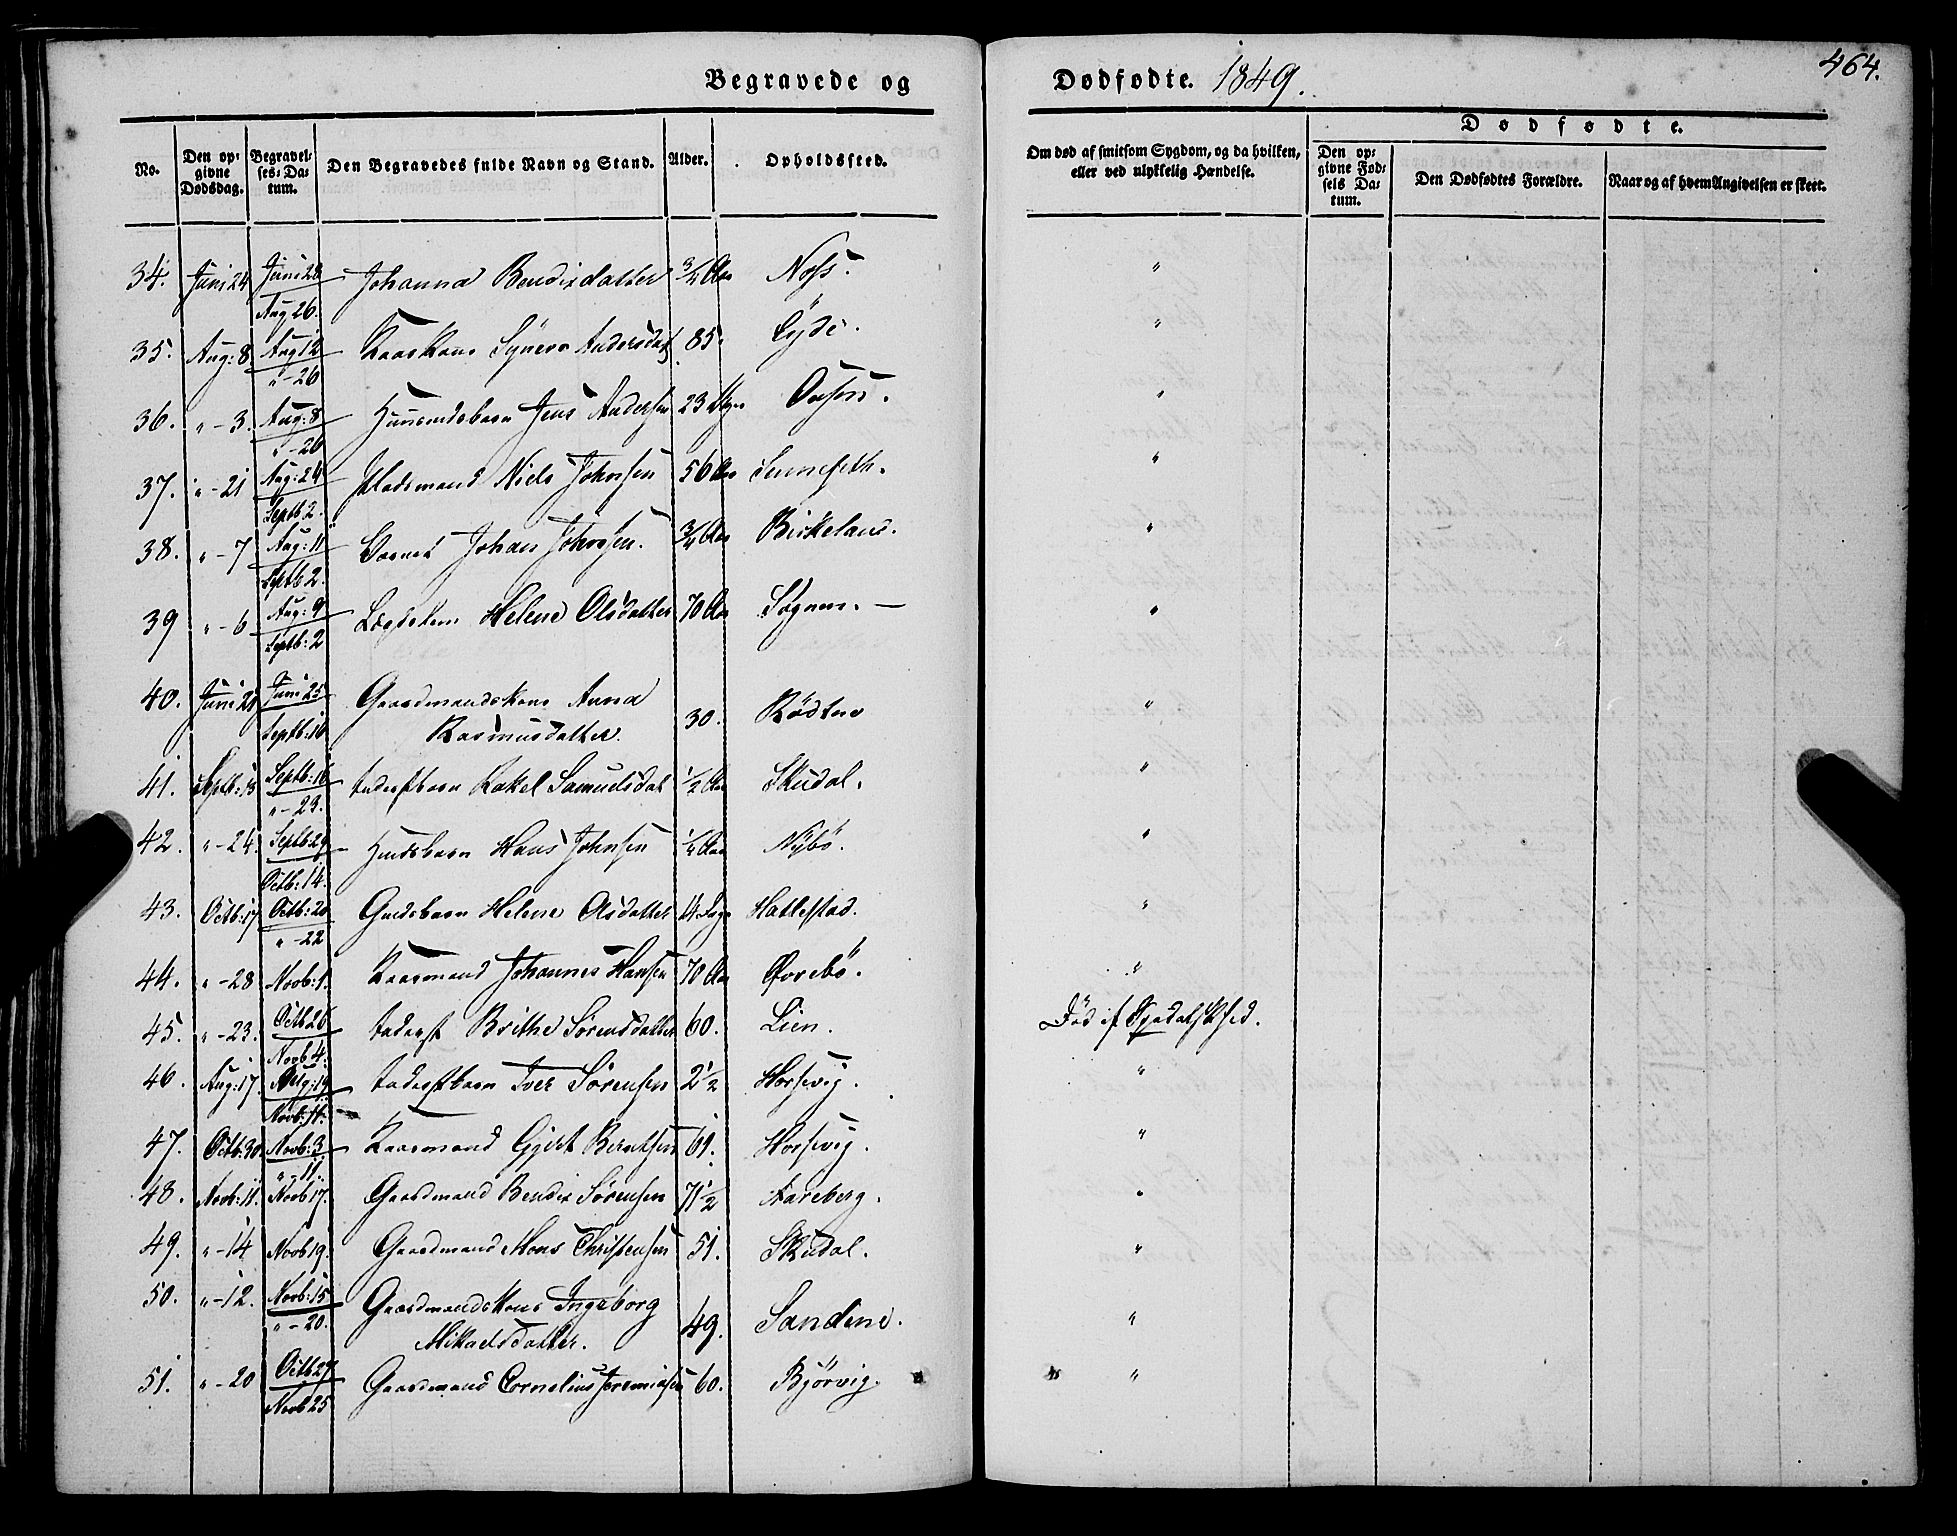 Begravede og Dødfødte. 1849. 464.
No. Den opgivne Dødsdag. Begravelses-Datum. Den Begravedes fulde Navn og Stand. Alder. Opholdssted. Om død af smitsom Sygdom, og da hvilken, eller ved ulykkelig Hændelse. Dødfødte. Den opgivne Fødsels Datum. Den Dødfødtes Forældre. Naar og af hvem Angivelsen er skeet.
34. Juni 24 Juni 28 Aug 26. Johanna Bendixdatter 3/4 Aar "
35. Aug: 8 Aug 12 " - 26 Kaarkone Andersdat 85. "
36. " - 3. Aug: 8 " - 26 Huusmdsbarn Jens Andersen 23 "
37. " - 21 Aug: 24 Septb 2. Pladsmand Niels Johnsen 56 Aar "
38. " - 7 Aug: 11 Septb 2. Barnet Johan Johnsen. 3/4 Aar Birkeland. "
39 " - 6 Aug: 9 Septb: 2 Lægdslem Helene Olsdatter 70 Aar Sognen. — "
40. Juni Juni 25 Septb: 16 Gaardmandskone Anna Rasmusdatter. 30. "
41. Septb: 13 Septb: 16 " - 23. Inderstbarn Rakel Samuelsdat 1/2 Aar Skudal. "
42. " - 24. Septb 29 Octb: 14. Hans Johnsen 1/4 Aar Nybö. "
43. Octb: 17 Octb: 20 " - 22 Helene Olsdatter Dage Hatlestad. "
44. " - 28 Novb: 1. Kaarmand Johannes Hansen 70 Aar Øvrebö. "
45. " - 23. Octb 26 Novb 4. Inderst Brithe Sörensdatter 60. Lien. Död af Spedalskhed.
46. Aug: 17. Aug: 19 Novb: 11. Inderstbarn Iver Sörensen 2 1/2 Horsevig. "
47. Octb: 30. Novb: 3 " - 11. Kaarmand Gjert Berntsen 61. Horsevig. "
48. Novb: 11. Novb 17. Gaardmand Bendix Sörensen 71 1/2 Aareberg. "
49. " - 14 Novb 19. Gaardmand Mons Christensen 51. Skudal. "
50. " - 12. Novb: 15 " - 20. Gaardmandskone Ingeborg Mikaelsdatter. 49. Sandene. "
51. " - 20 Octb 27 Novb 25 Gaardmand Cornelius Jeremiasen 60. Bjørvig. "